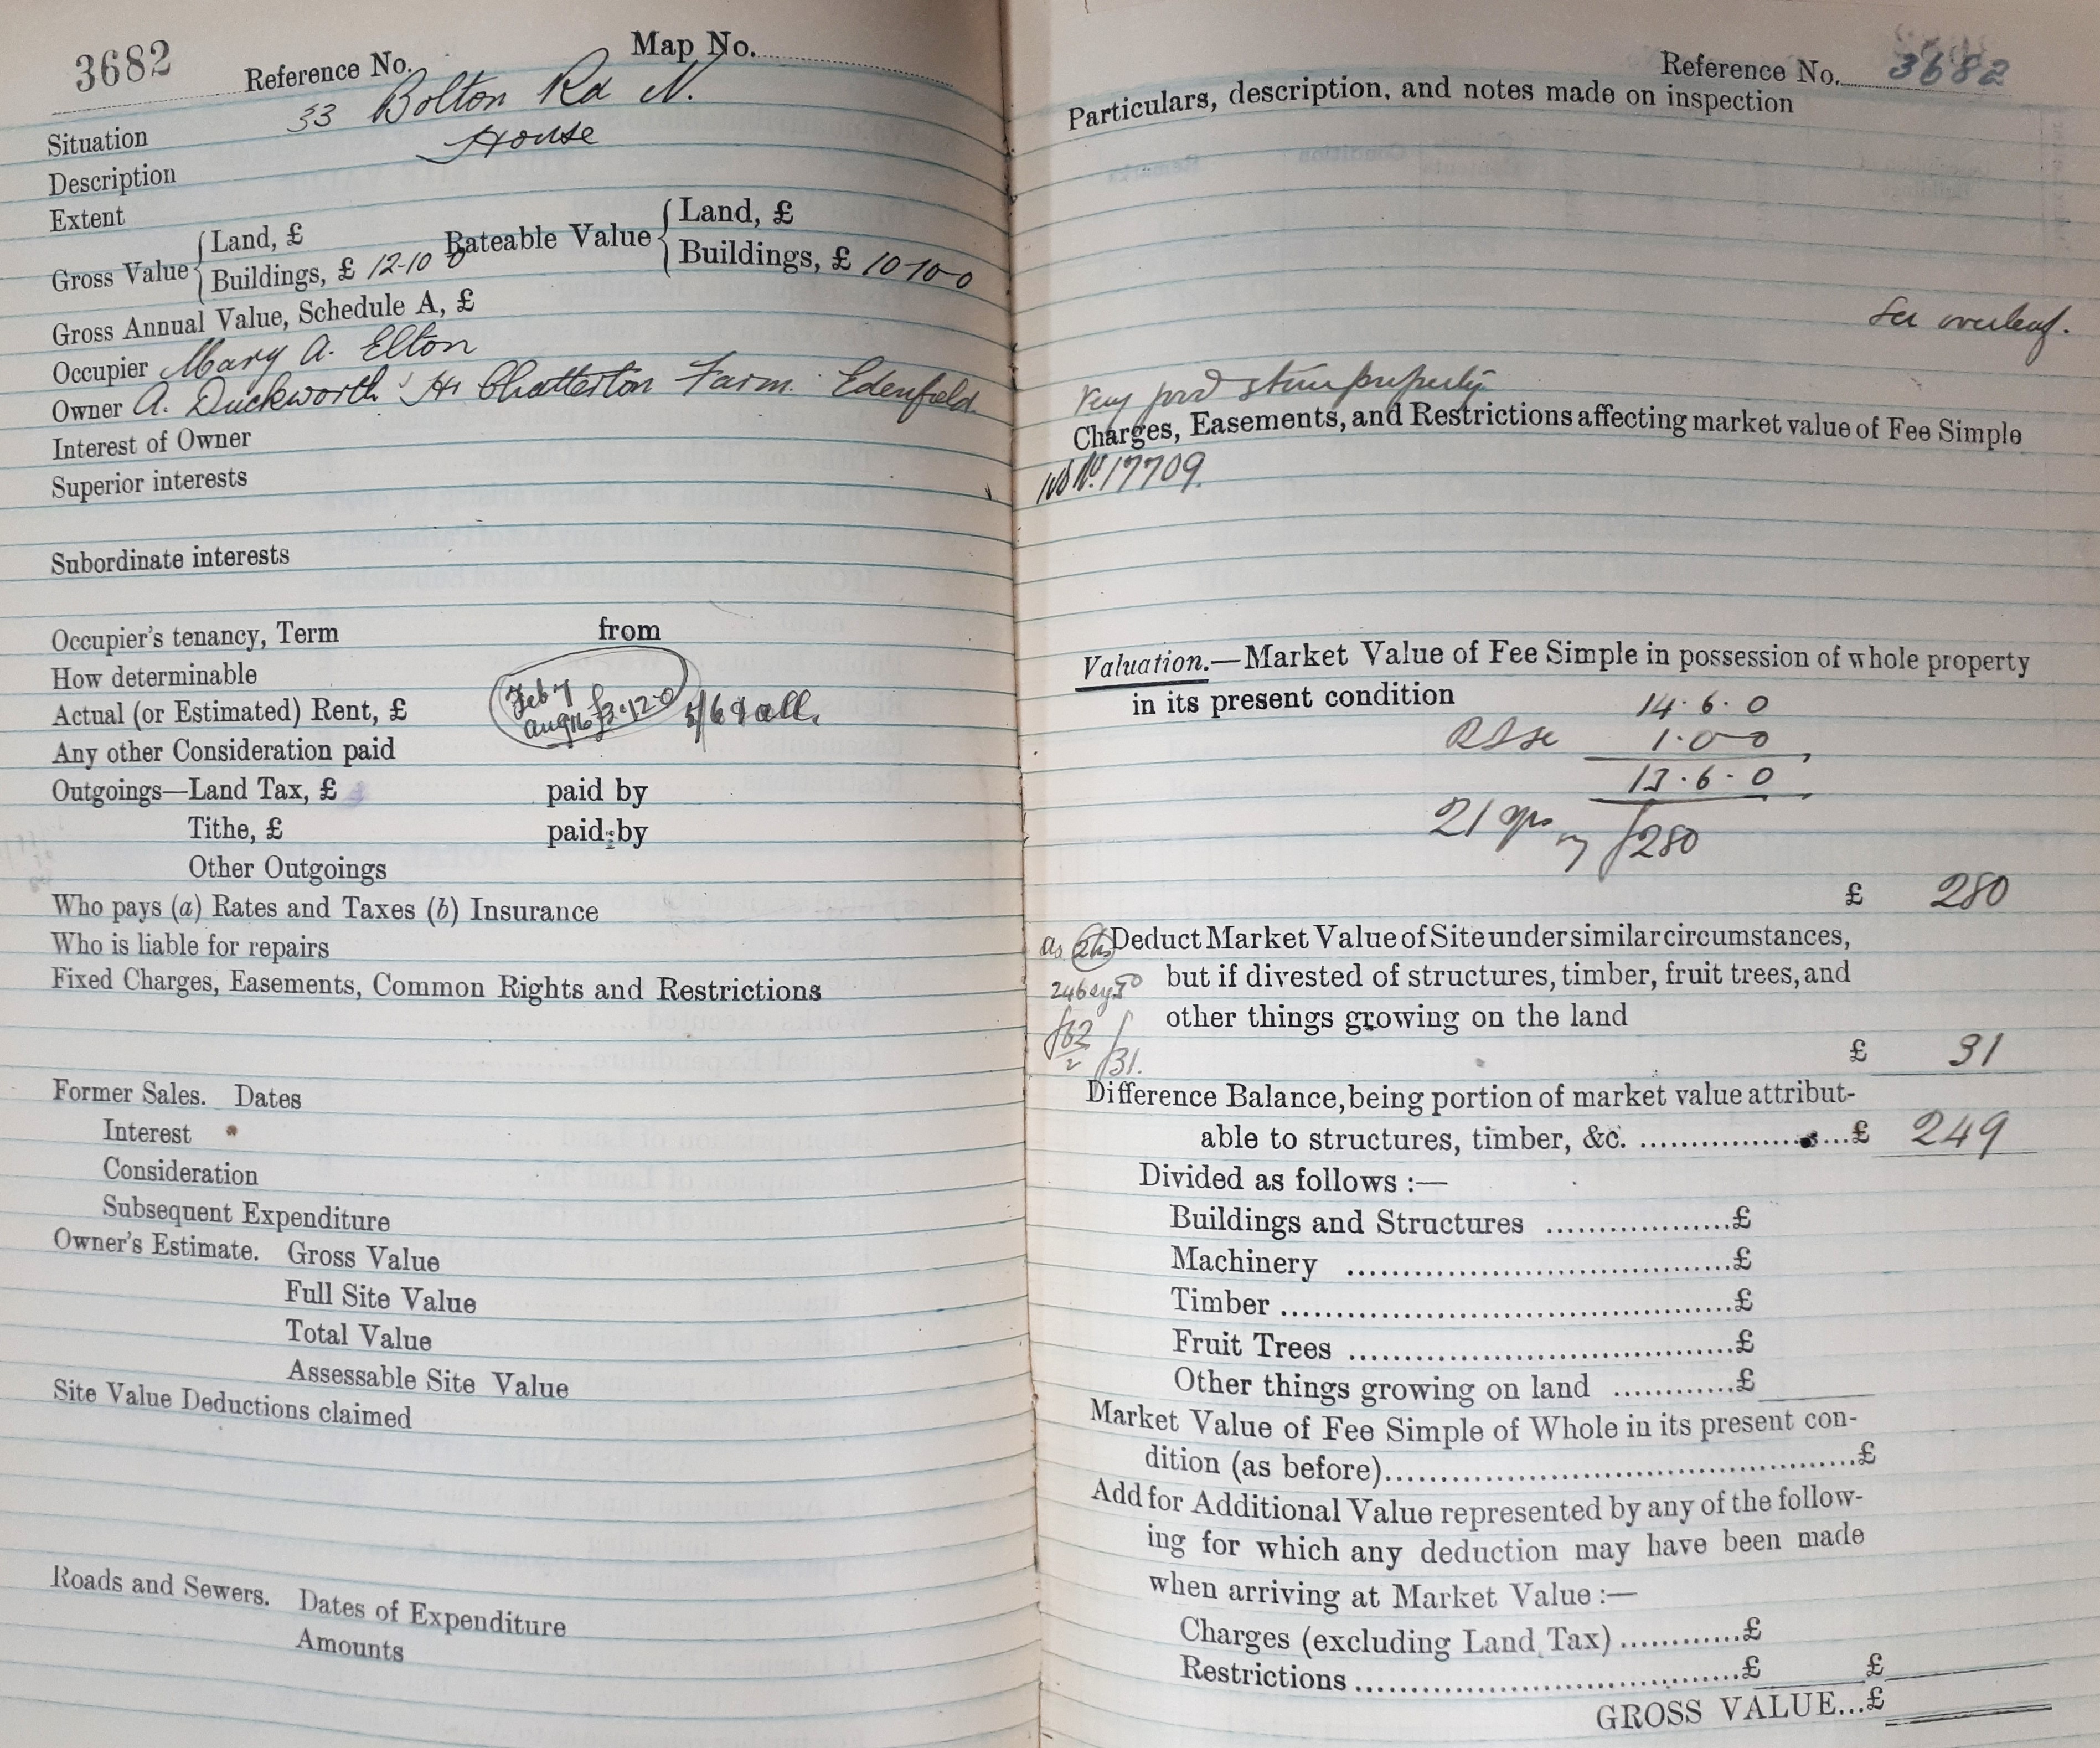 3682
Reference No.
Map No.
Situation 33 Bolton Rd N.
Description House
Extent
Gross Value { Land, £
Buildings, £ 12-10 0
Rateable Value { Land, £
Buildings, £ 10-10-0
Gross Annual Value, Schedule A, £
Occupier Mary A. Elton
Owner A. Duckworth Chatterton Farm. Edenfield.
Interest of Owner
Superior interests
Subordinate interests
Occupier's tenancy, Term from
How determinable
Actual (or Estimated) Rent, £ Feb 7 Aug 16 £2.12.0 5/6 all.
Any other Consideration paid
Outgoings—Land Tax, £ paid by
Tithe, £ paid by
Other Outgoings
Who pays (a) Rates and Taxes (b) Insurance
Who is liable for repairs
Fixed Charges, Easements, Common Rights and Restrictions
Former Sales. Dates
Interest
Consideration
Subsequent Expenditure
Owner's Estimate. Gross Value
Full Site Value
Total Value
Assessable Site Value
Site Value Deductions claimed
Roads and Sewers. Dates of Expenditure
Amounts
Reference No. 3682
Particulars, description, and notes made on inspection
See overleaf.
Very good stone property
Charges, Easements, and Restrictions affecting market value of Fee Simple
No. 17709.
Valuation.—Market Value of Fee Simple in possession of whole property
in its present condition
14.6.0
1.0 0
13.6.0
21 yrs £280
£ 280
as Deduct Market Value of Site under similar circumstances,
246 but if divested of structures, timber, fruit trees, and
other things growing on the land
£62/2 £31.
£ 31
Difference Balance, being portion of market value attribut-
able to structures, timber, &c. ....................£ 249
Divided as follows :—
Buildings and Structures ..................£
Machinery ..................£
Timber ..................£
Fruit Trees ..................£
Other things growing on land ............£
Market Value of Fee Simple of Whole in its present con-
dition (as before)..................£
Add for Additional Value represented by any of the follow-
ing for which any deduction may have been made
when arriving at Market Value :—
Charges (excluding Land Tax) ............£
Restrictions ..................£ £
GROSS VALUE...£